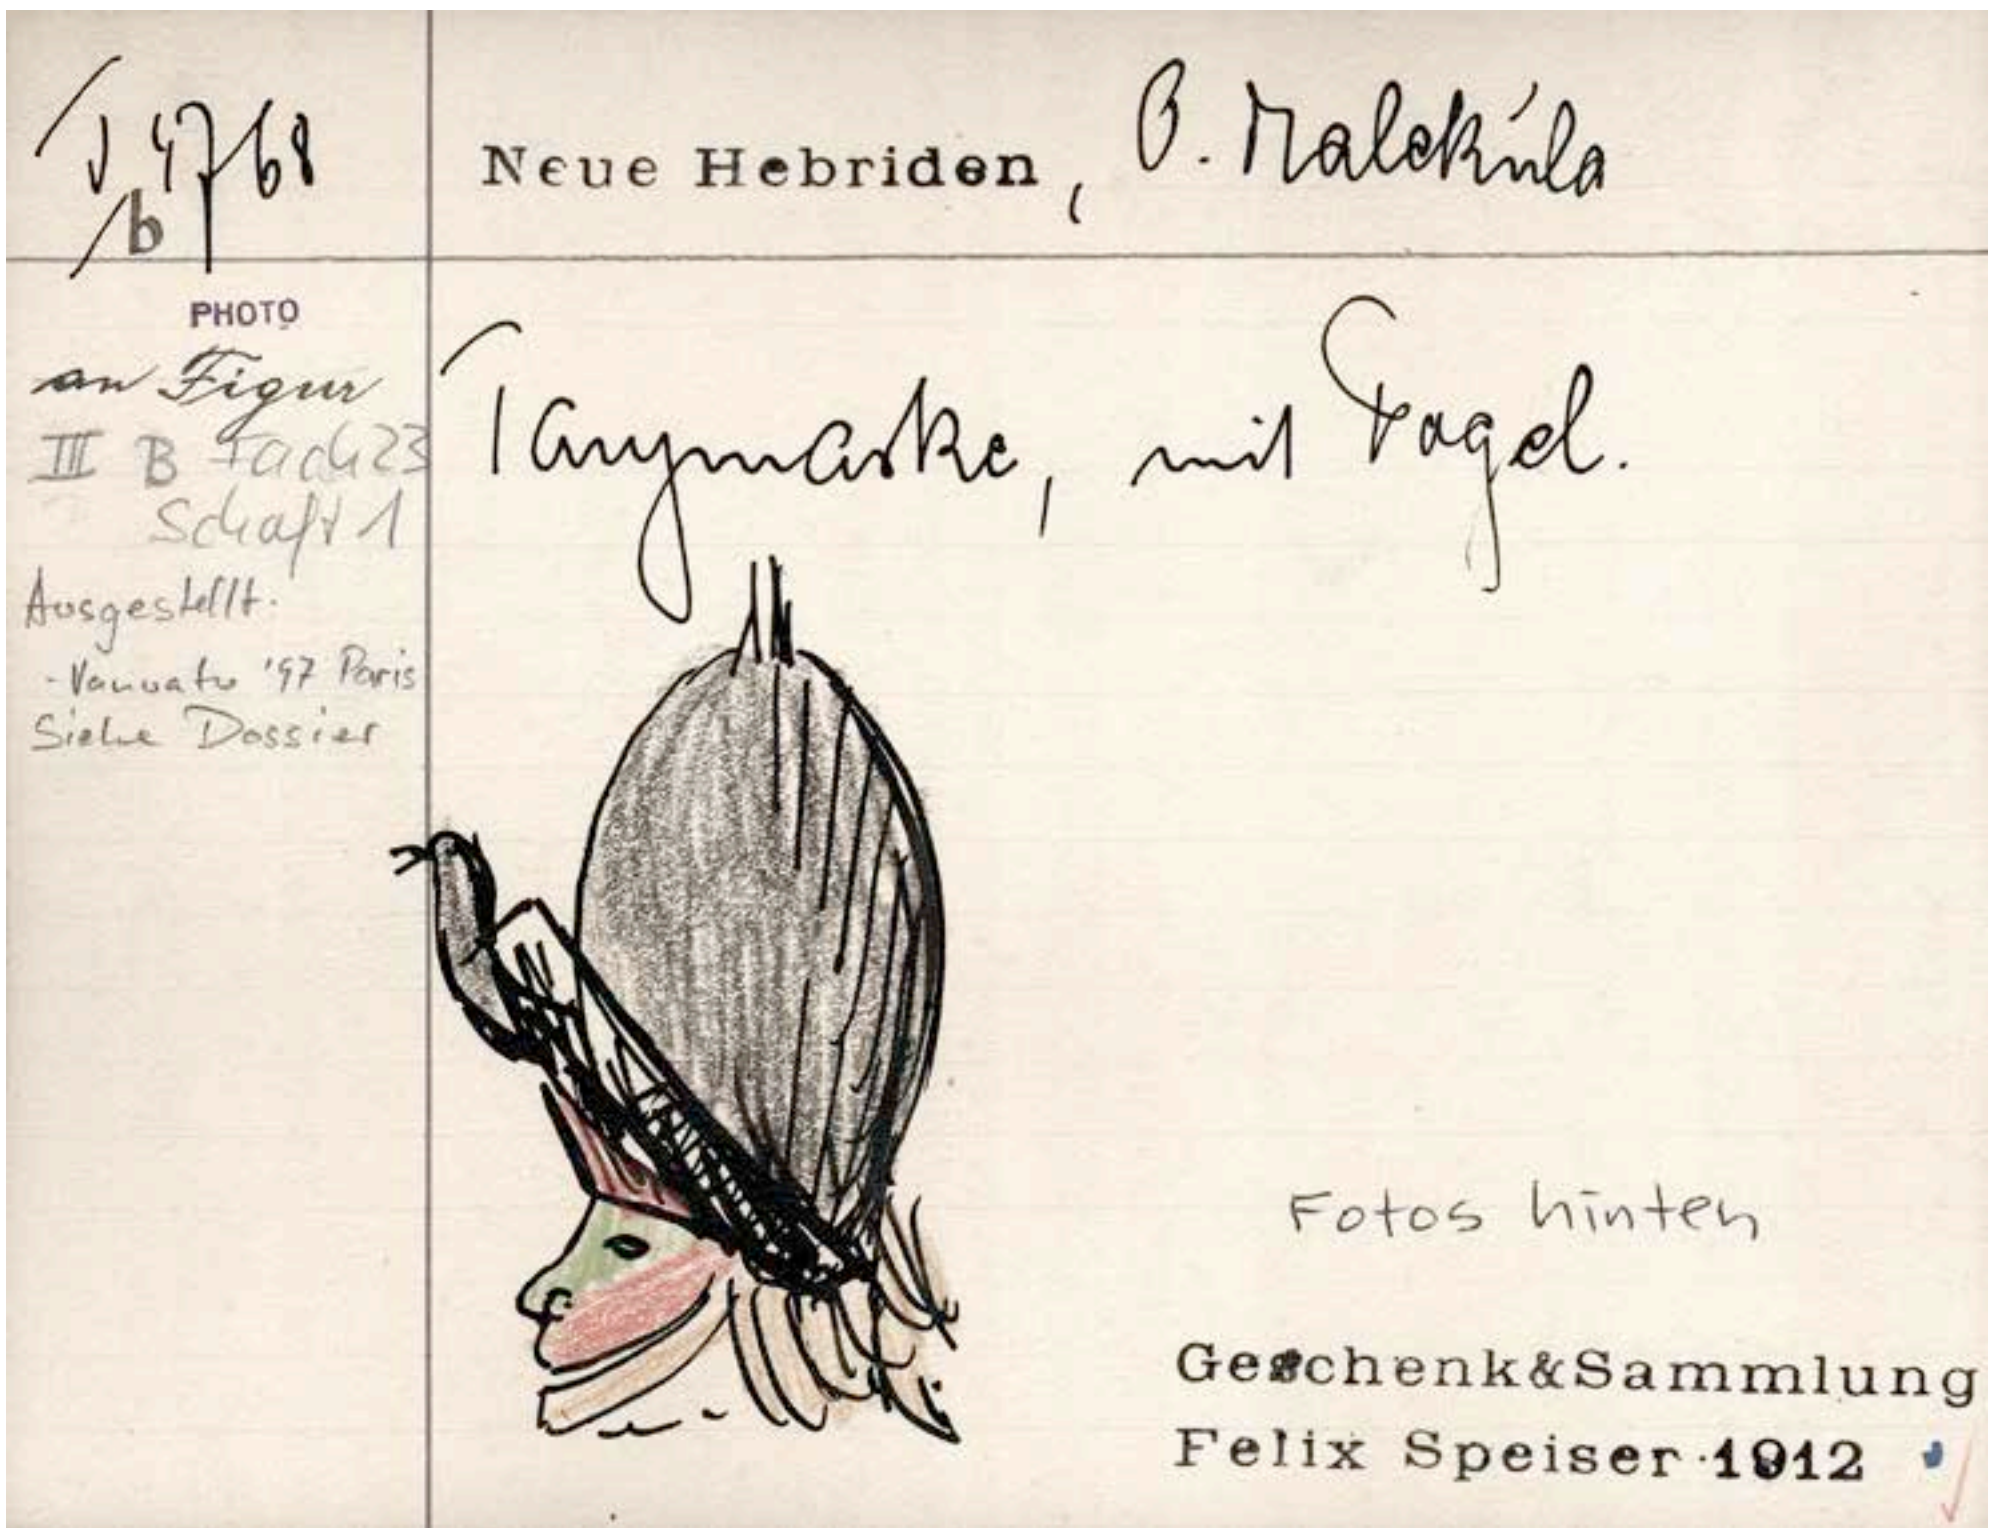 V 4768
b
Neue Hebriden, O. Malekúla
PHOTO
an Figur
III B Fach 23
Schaft 1
Ausgestellt:
- Vanuatu '97 Paris
Siehe Dossier
Tanzmaske, mit Vogel.
Fotos hinten
Geschenk&Sammlung
Felix Speiser 1912